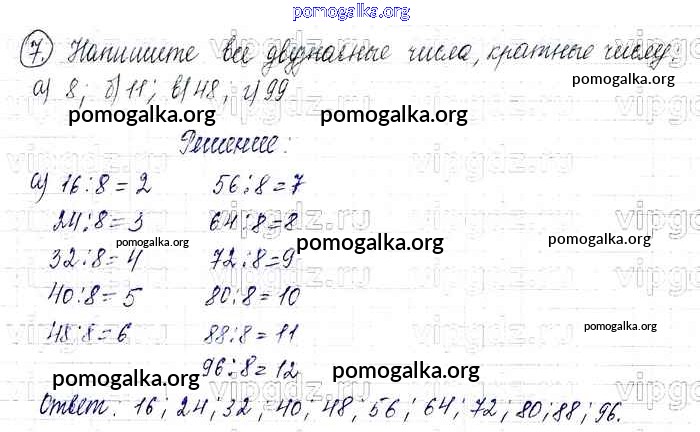 pomogalka.org
7. Напишите все двузначные числа, кратные числу:
а) 8; б) 11; в) 48; г) 99
pomogalka.org
pomogalka.org
pomogalka.org
Решение:
vipgdz.ru
а) 16:8=2 56:8=7
24:8=3 64:8=8
pomogalka.org
pomogalka.org
pomogalka.org
32:8=4 72:8=9
40:8=5 80:8=10
48:8=6 88:8=11
pomogalka.org
96:8=12
pomogalka.org
pomogalka.org
vipgdz.ru
Ответ: 16; 24; 32; 40; 48; 56; 64; 72; 80; 88; 96.